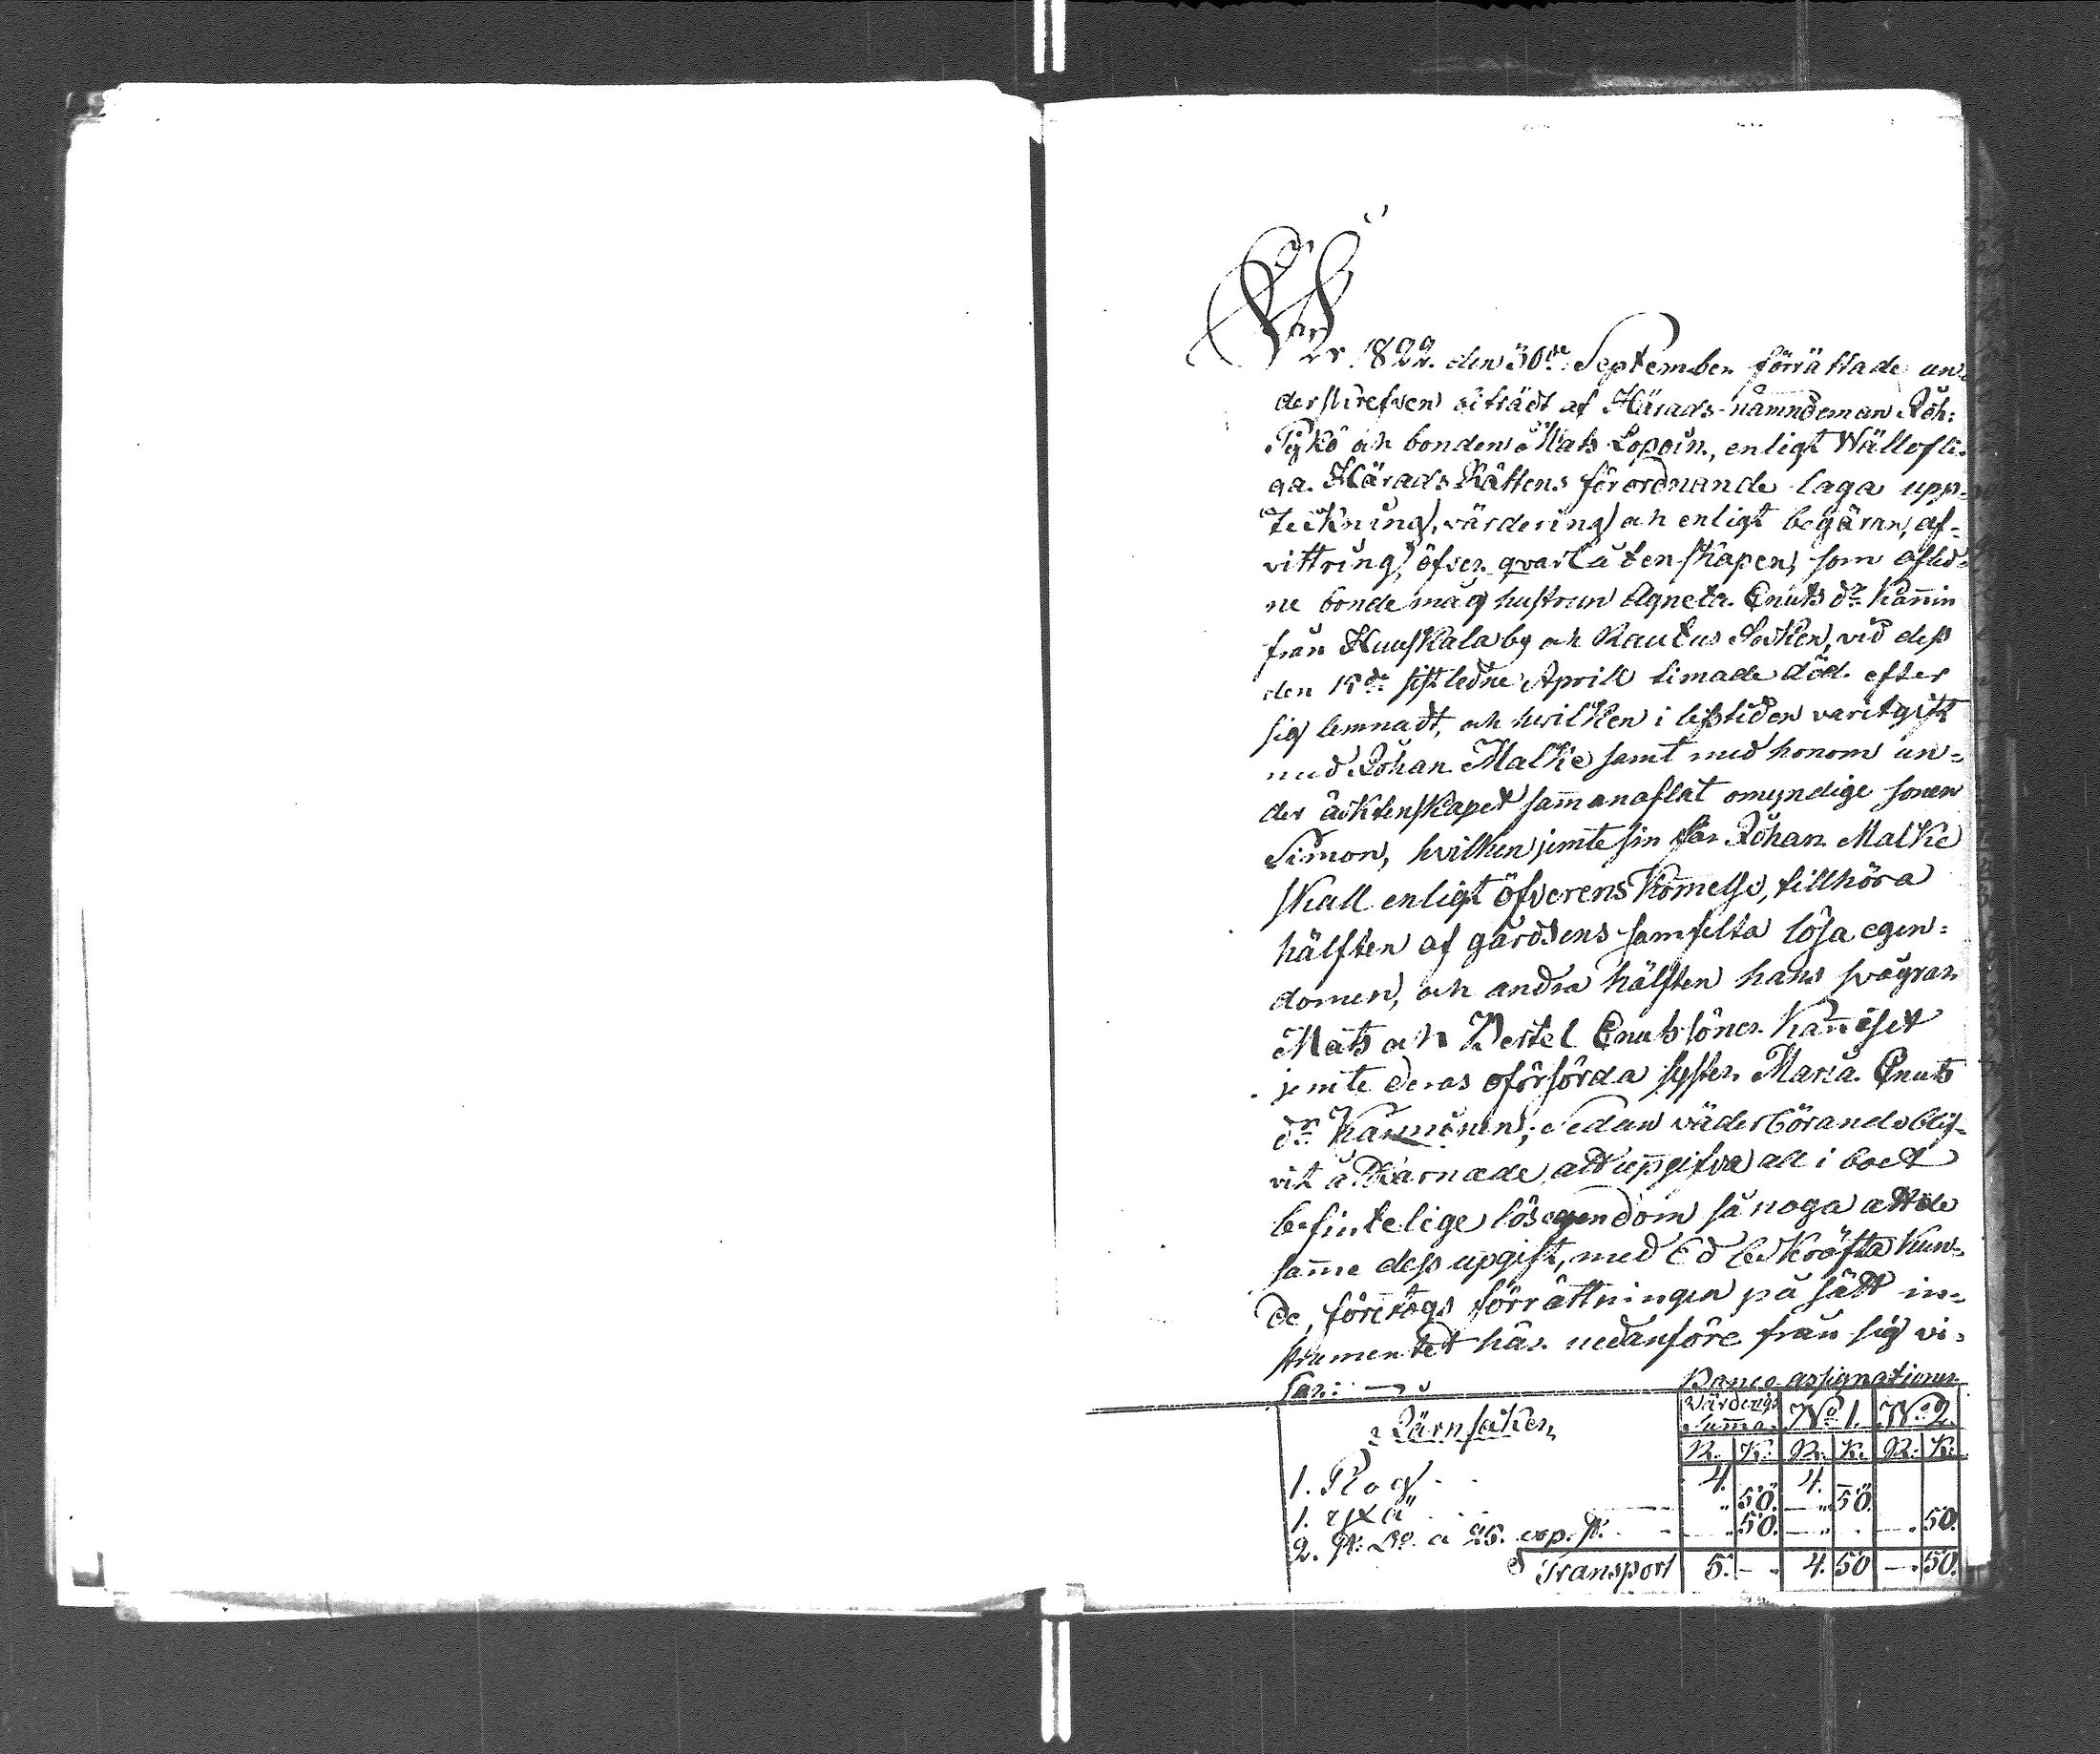 År 1822. den 30de September förrättade un-
derskrefven biträdt af Härads-nämndeman Joh:
Pykö och bonden Mats Lopoin, enligt Wällofli-
ga Härads Rättens förordnande laga upp-
teckning, värdering och enligt begäran, af-
vittring, öfver qvarlåtenskapen, som aflid-
ne bonde måg hustrun Agneta Enuts dr Kan̄in
från Huuskala by och Rautus Socken, vid dess
den 15de sistledne Aprill timade död efter
sig lemnadt, och hvilken i lifstiden varit gift
med Johan Malke samt med honom un-
der äcktenskapet sam̄anaflat omyndige sonen
Simon, hvilken jemte sin far Johan Malke
skall enligt öfverenskom̄else, tillhöra
hälften af gårdsens samfelta lösa egen-
domen, och andra hälften hans svågrar
Mats och Bertel Enuts söner Kan̄iset
jemte deras oförsörda syster Maria Enuts
dr Kanninen; Sedan väderbörande blif-
vit åtvarnade att uppgifva all i boet
befintelige lösegendom så noga att de
sam̄a dess upgift, med Ed bekräfta kun-
de, företogs förrättningen på sätt in-
strumentet här nedanföre från sig vi-
sar:
Banco assignationer
Järnsaker
Värderings Sum̄a No 1. No 2.
R. K. R. K. R. K.
1. Plog 4. 4.
1. yxa 50. 50.
2. st: Do a 25. cop. st. 50. 50.
Transport 5. - 4. 50 - 50.